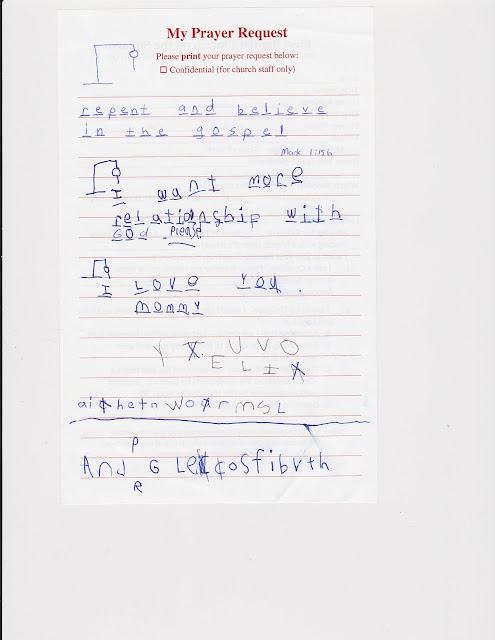 My Prayer Request
Please print your prayer request below:
☐ Confidential (for church staff only)
repent and believe
in the gospel
Mark 1:15b
I want more
relationship with
God please
I Love You.
mommy
Y U V O
E L I
And